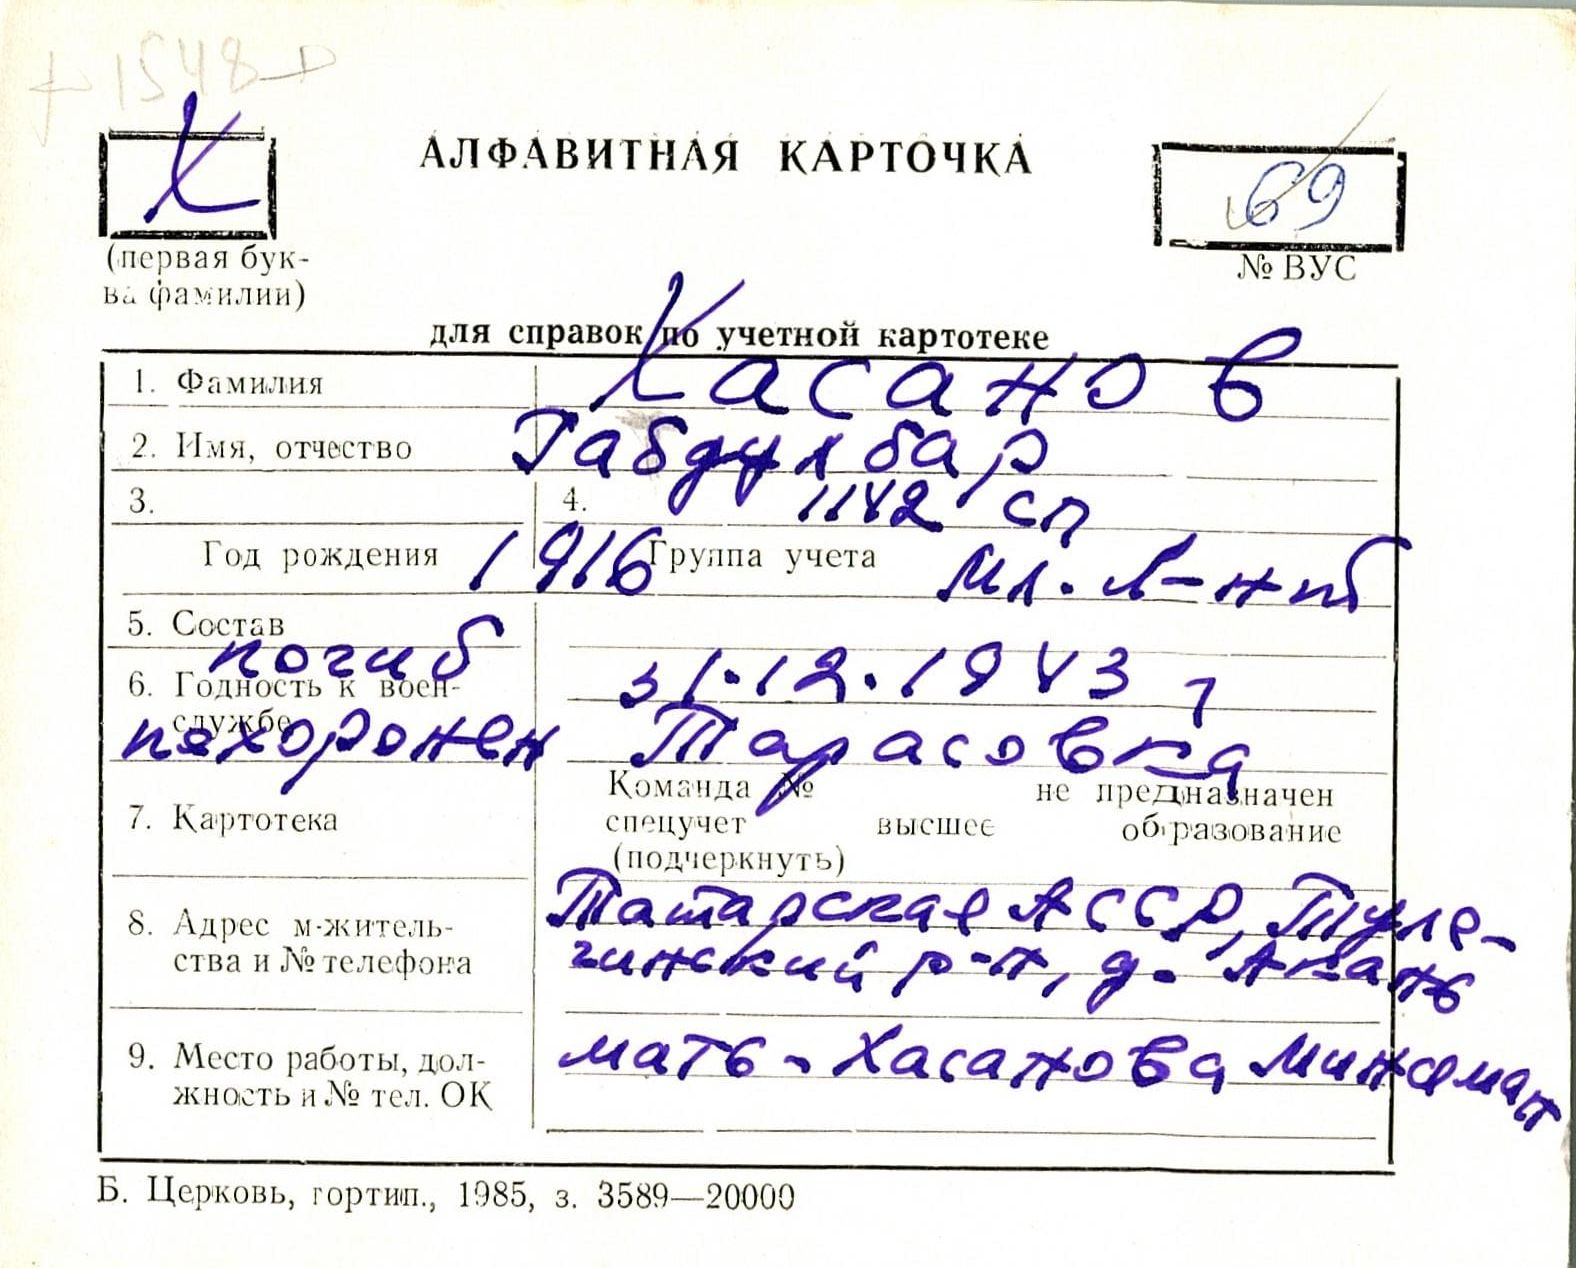 1548
Х
АЛФАВИТНАЯ КАРТОЧКА
69
(первая бук-
ва фамилии)
№ ВУС
для справок по учетной картотеке
1. Фамилия Хасанов
2. Имя, отчество Габдулбар
3. 4. 1142 сп
Год рождения 1916 Группа учета мл. л-нт
5. Состав
погиб 31.12.1943 г
6. Годность к воен-
службе
похоронен Тарасовка
Команда № не предназначен
7. Картотека спецучет высшее образование
(подчеркнуть)
8. Адрес м-житель-
ства и № телефона
Татарская АССР, Туле-
гинский р-н, д. Акань
9. Место работы, дол-
жность и № тел. ОК
мать - Хасанова
Б. Церковь, гортип., 1985, з. 3589—20000